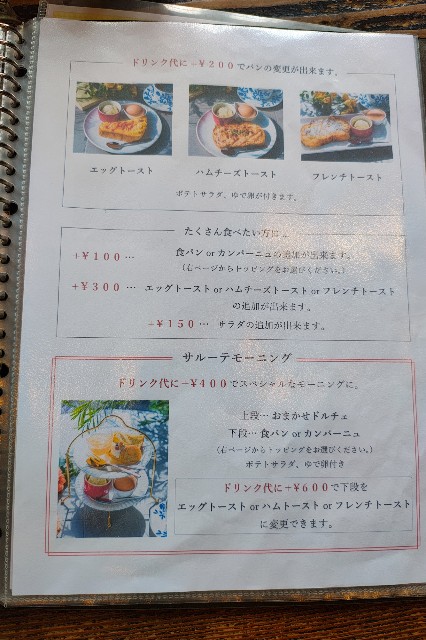 ドリンク代に+￥200でパンの変更が出来ます。
エッグトースト
ハムチーズトースト
フレンチトースト
ポテトサラダ、ゆで卵が付きます。
たくさん食べたい方に。
+￥100… 食パン or カンパーニュの追加が出来ます。
（右ページからトッピングをお選びください。）
+￥300… エッグトースト or ハムチーズトースト or フレンチトースト
の追加が出来ます。
+￥150… サラダの追加が出来ます。
サルーテモーニング
ドリンク代に+￥400でスペシャルなモーニングに。
上段… おまかせドルチェ
下段… 食パン or カンパーニュ
（右ページからトッピングをお選びください。）
ポテトサラダ、ゆで卵付き
ドリンク代に+￥600で下段を
エッグトースト or ハムトースト or フレンチトースト
に変更できます。